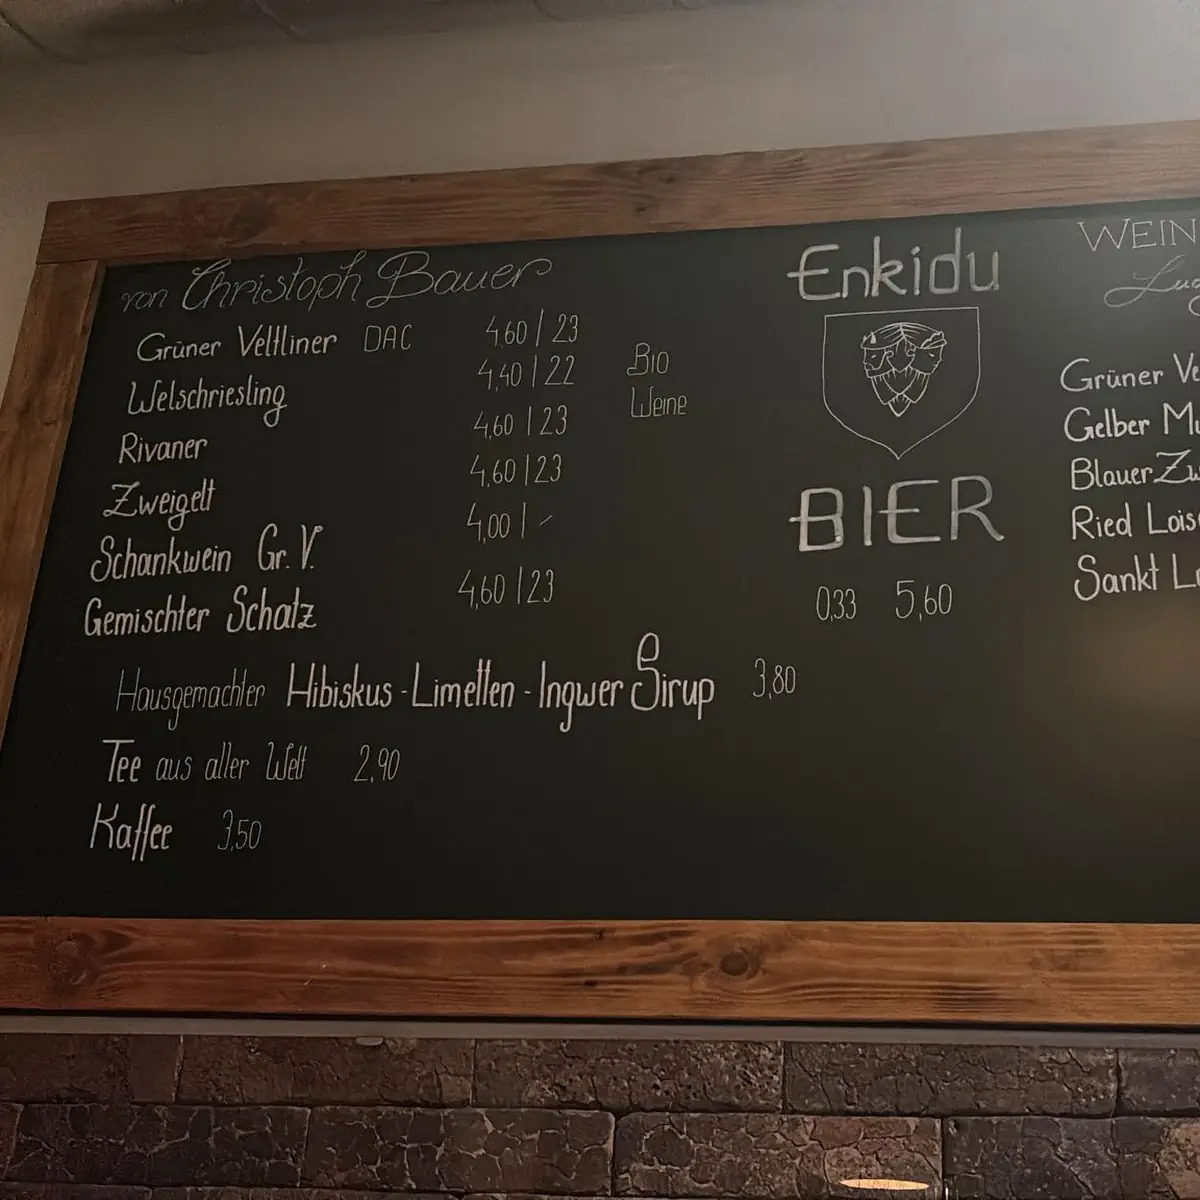 von Christoph Bauer
Grüner Veltliner DAC 4,60 | 23
Welschriesling 4,40 | 22
Rivaner 4,60 | 23
Zweigelt 4,60 | 23
Schankwein Gr. V. 4,00 | -
Gemischter Schatz 4,60 | 23
Bio
Weine
Hausgemachter Hibiskus - Limetten - Ingwer Sirup 3,80
Tee aus aller Welt 2,90
Kaffee 3,50
Enkidu
BIER
0,33 5,60
WEIN
Grüner Ve
Gelber Mu
Blauer Zw
Ried Lois
Sankt L